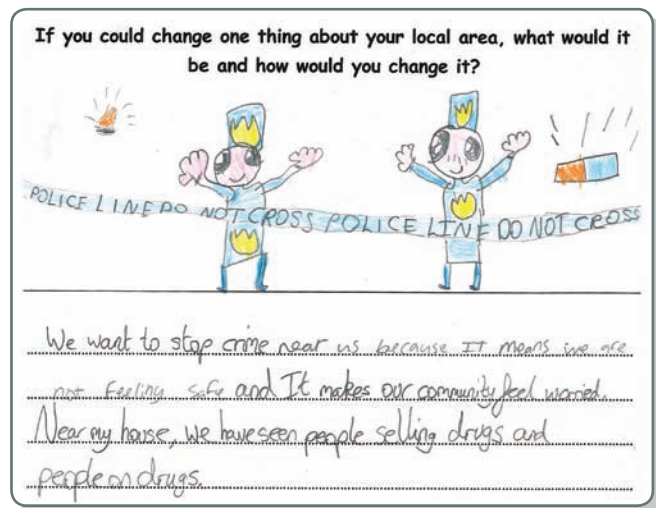 If you could change one thing about your local area, what would it
be and how would you change it?
POLICE LINE DO NOT CROSS POLICE LINE DO NOT CROSS
We want to stop crime near us because It means we are
not feeling safe and It makes our community feel worried.
Near my house, we have seen people selling drugs and
people on drugs.